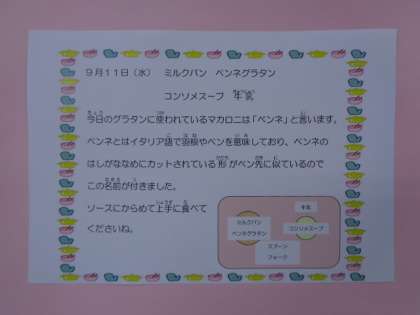 9月11日（水）　ミルクパン　ペンネグラタン
コンソメスープ　牛乳
今日のグラタンに使われているマカロニは「ペンネ」と言います。
ペンネとはイタリア語で羽根やペンを意味しており、ペンネの
はしがななめにカットされている形がペン先に似ているので
この名前が付きました。
ソースにからめて上手に食べて
くださいね。
牛乳
ミルクパン
ペンネグラタン
コンソメスープ
スプーン
フォーク